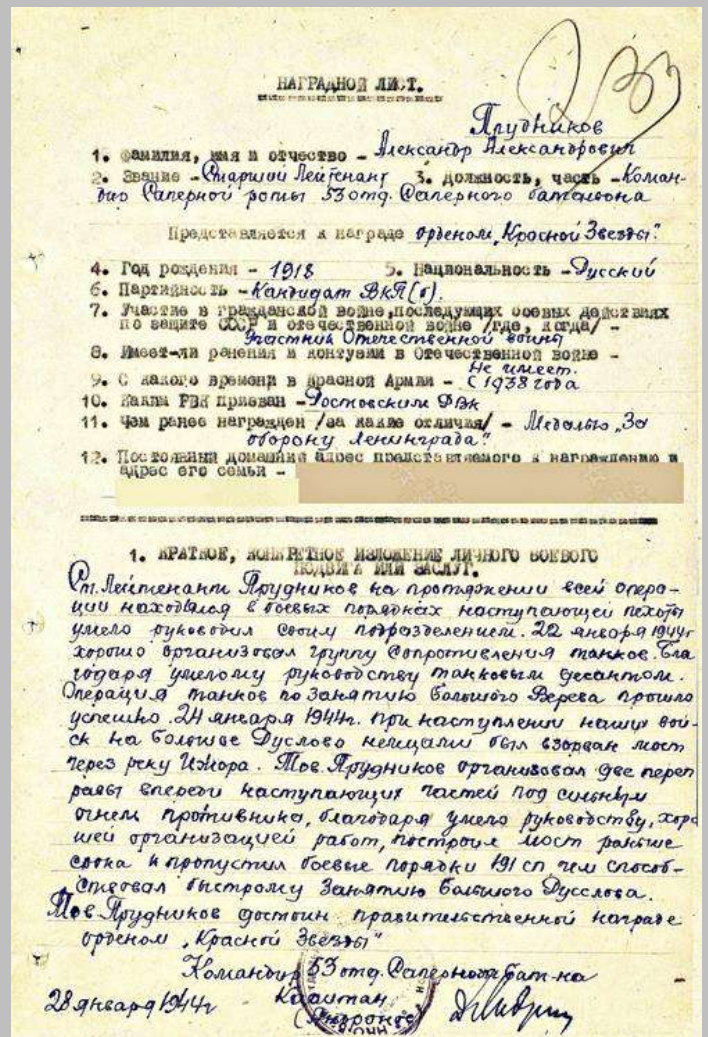 233
НАГРАДНОЙ ЛИСТ.
Прудников
1. Фамилия, имя и отчество - Александр Александрович
2. Звание - Старший Лейтенант 3. Должность, часть - Коман-
дир Саперной роты 53 отд. Саперного батальона
Представляется к награде орденом „Красной Звезды".
4. Год рождения - 1918 5. Национальность - Русский
6. Партийность - Кандидат ВКП(б).
7. Участие в гражданской войне, последующих боевых действиях
по защите СССР и отечественной войне /где, когда/ -
Участник Отечественной войны
8. Имеет-ли ранения и контузии в Отечественной войне -
Не имеет.
9. С какого времени в Красной Армии - С 1938 года
10. Каким РВК призван - Ростовским РВК
11. Чем ранее награжден /за какие отличия/ - Медалью „За
оборону Ленинграда".
12. Постоянный домашний адрес представляемого к награждению и
адрес его семьи -
1. КРАТКОЕ, КОНКРЕТНОЕ ИЗЛОЖЕНИЕ ЛИЧНОГО БОЕВОГО
ПОДВИГА ИЛИ ЗАСЛУГ.
Ст. Лейтенант Прудников на протяжении всей опера-
ции находился в боевых порядках наступающей пехоты
умело руководил своим подразделением. 22 января 1944г
хорошо организовал группу сопротивления танков. Бла
годаря умелому руководству танковым десантом.
Операция танков по занятию большого Верева прошло
успешно. 24 января 1944г. при наступлении наших вой-
ск на большое Дуслово немцами был взорван мост
через реку Ижора. Тов. Прудников организовал две переп
равы впереди наступающих частей под сильным
огнем противника, благодаря умело руководству, хоро
шей организацией работ, построил мост раньше
срока и пропустил боевые порядки 191 сп чем способ-
ствовал быстрому занятию большого Дусслова.
Тов. Прудников достоин правительственной награде
орденом „Красной Звезды"
Командир 53 отд. Саперного бат-на
28 января 1944г Капитан